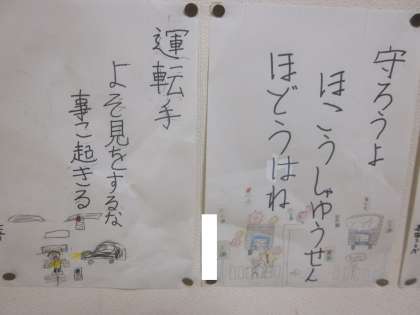 守ろうよ
ほこうしゃゆうせん
ほどうはね
運転手
よそ見をするな
事こ起きる